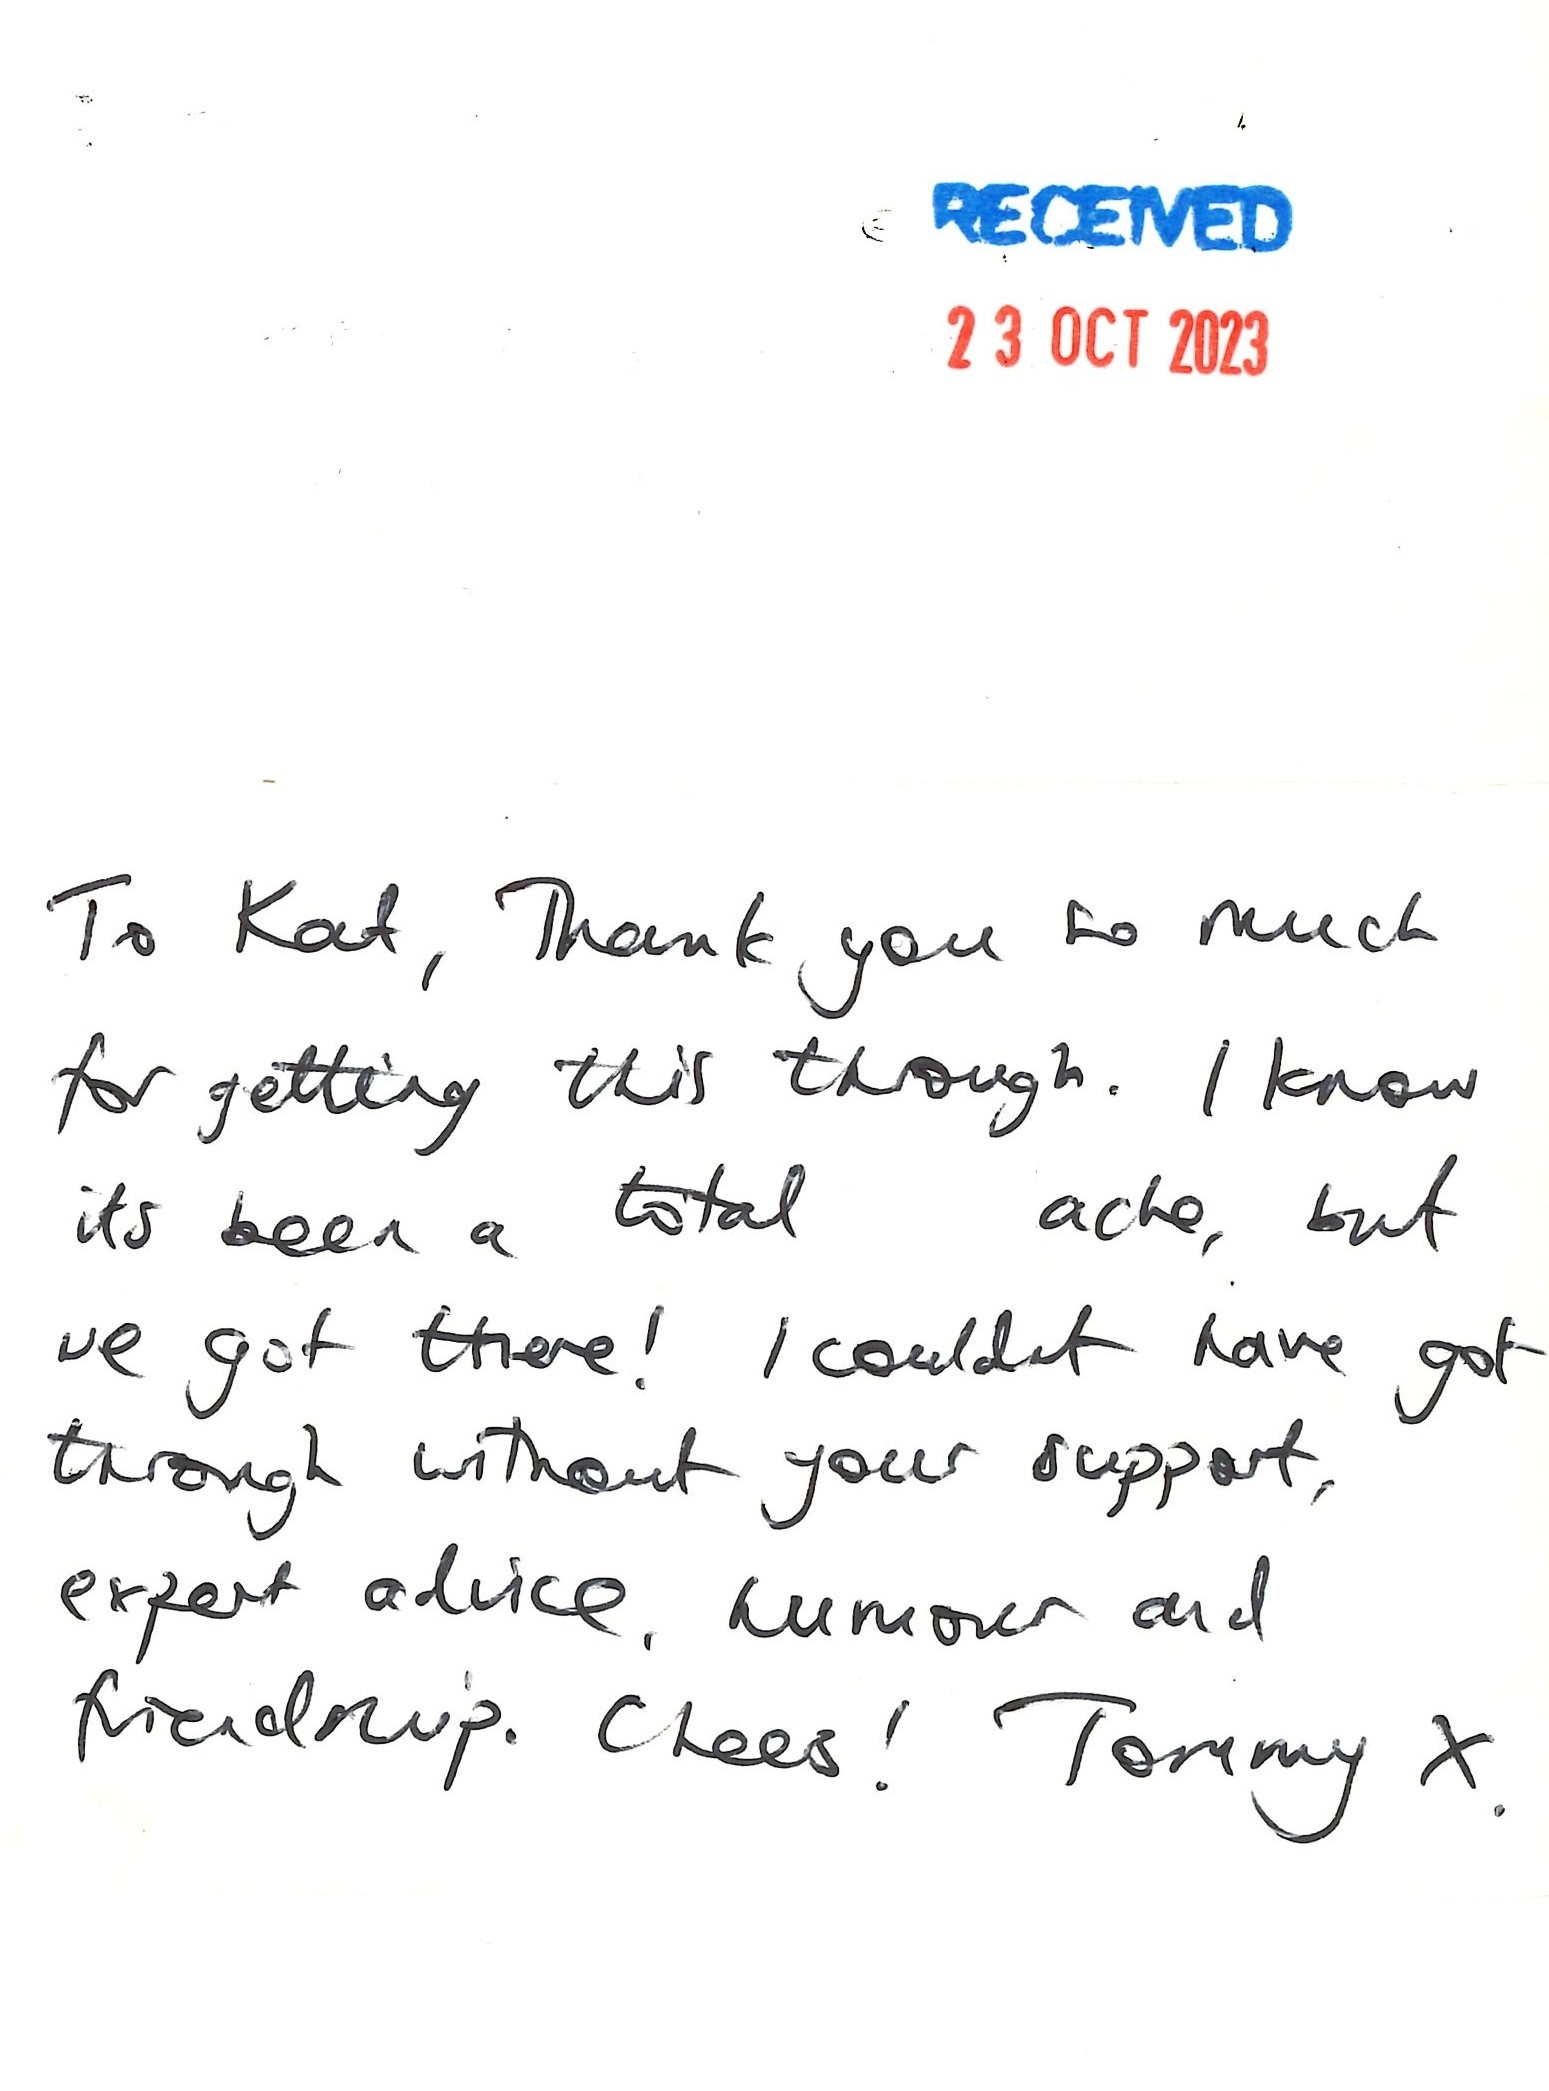 RECEIVED
23 OCT 2023
To Kat, Thank you so much
for getting this through. I know
its been a total ache, but
we got there! I couldnt have got
through without your support,
expert advice, humour and
friendship. Cheers! Tommy X.